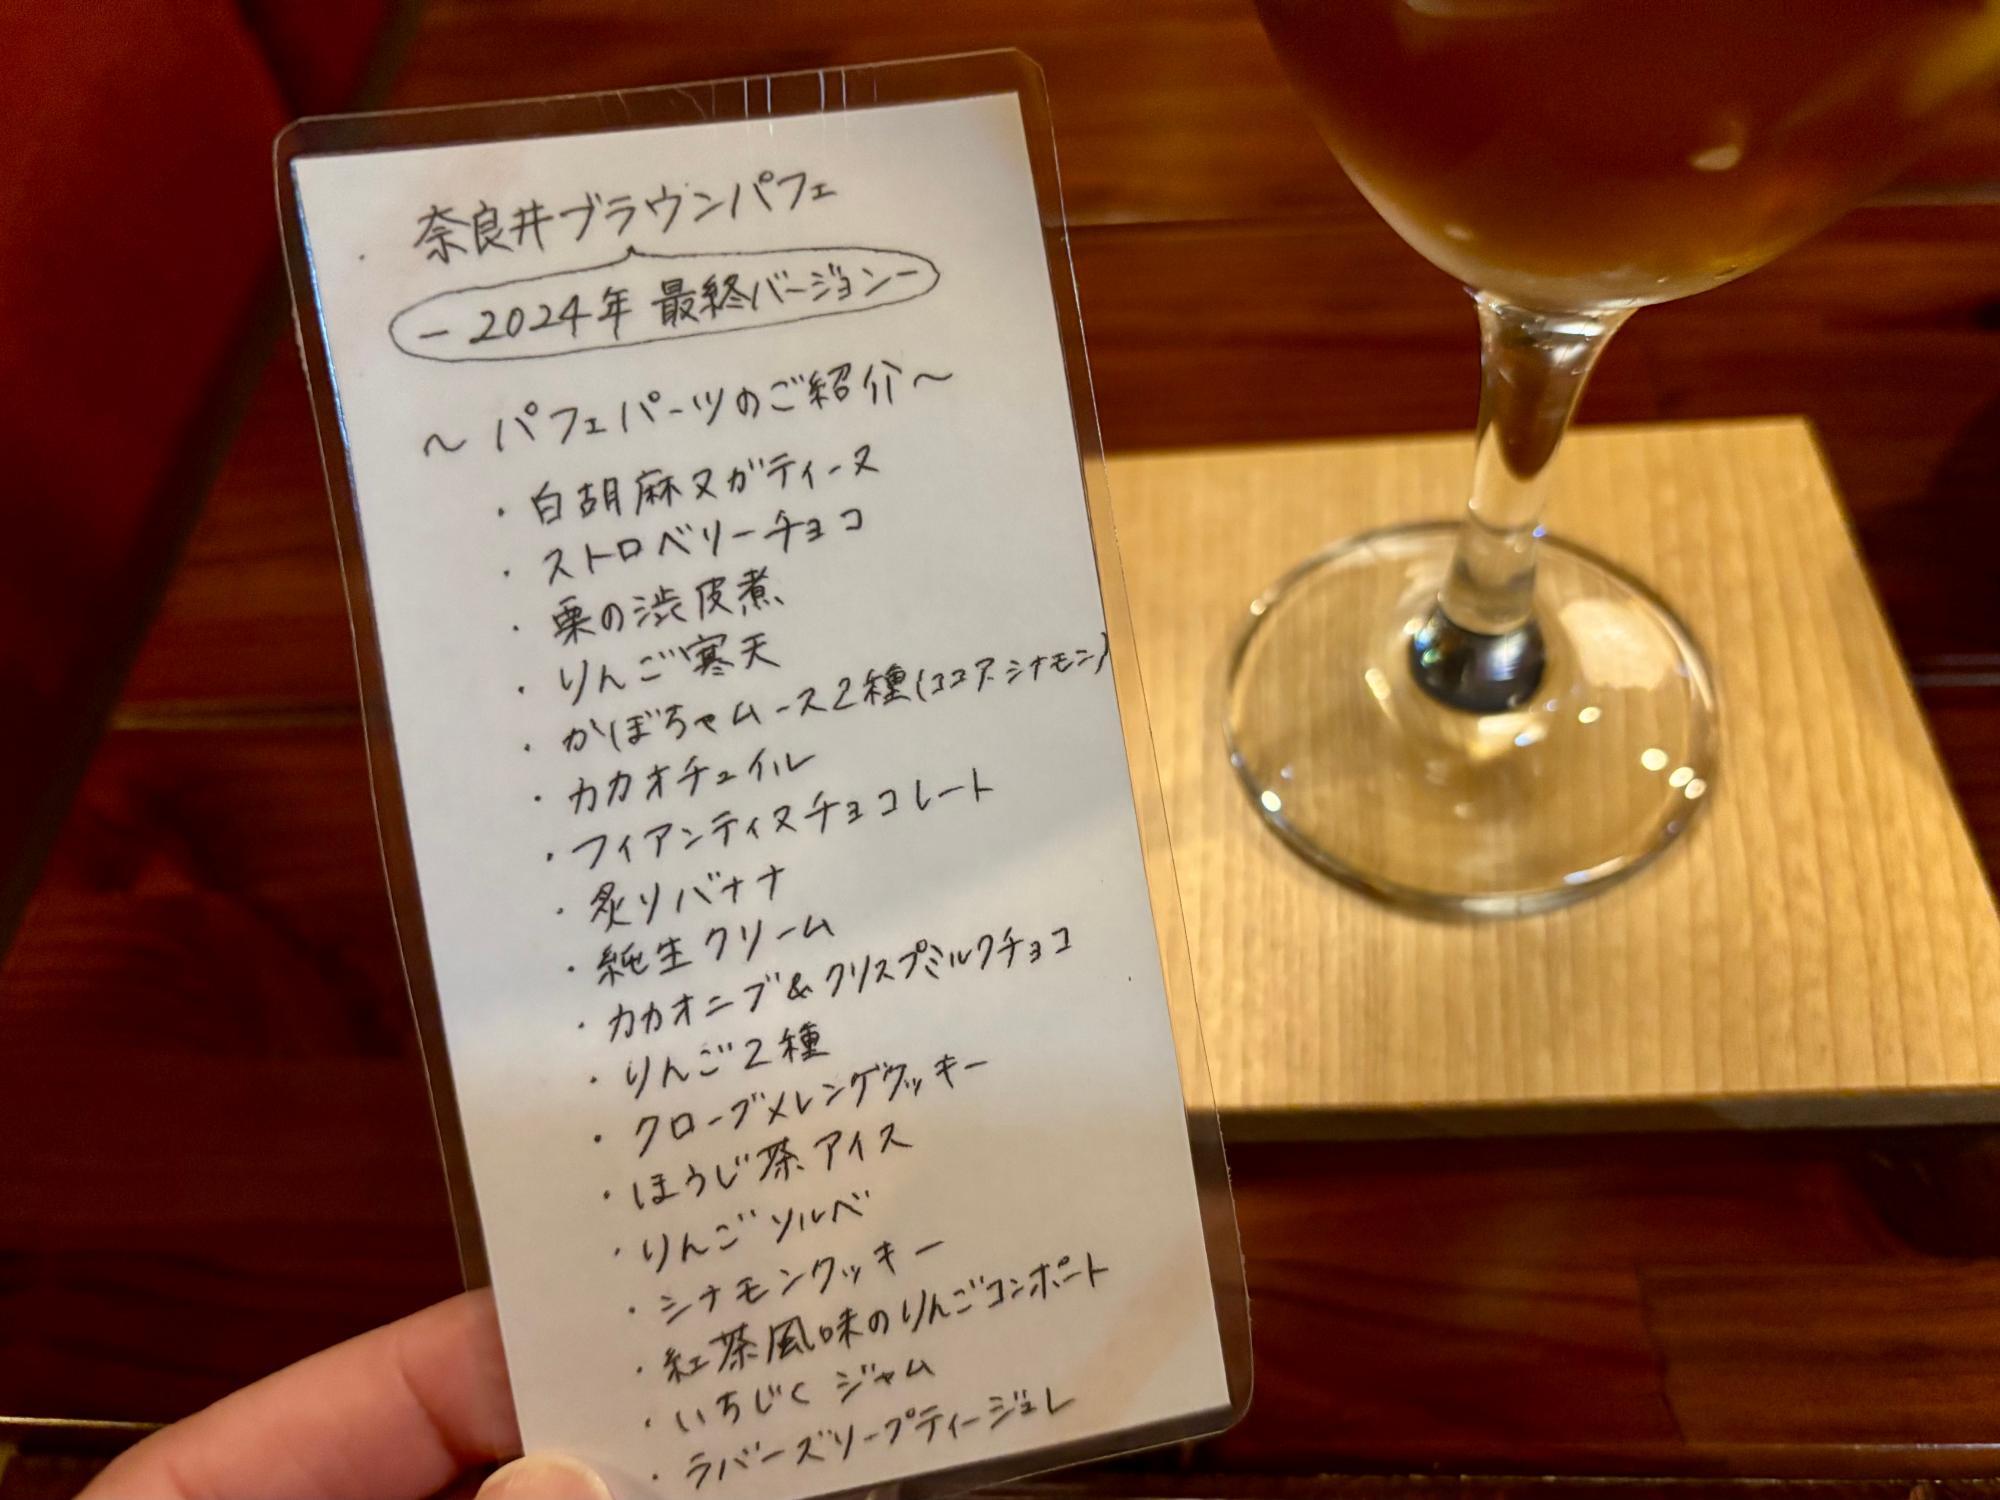 奈良井ブラウンパフェ
-2024年 最終バージョン-
～パフェパーツのご紹介～
・白胡麻ヌガティーヌ
・ストロベリーチョコ
・栗の渋皮煮
・りんご寒天
・かぼちゃムース2種(ココア シナモン)
・カカオチュイル
・フィアンティヌチョコレート
・炙りバナナ
・純生クリーム
・カカオニブ&クリスプミルクチョコ
・りんご2種
・クローブメレンゲクッキー
・ほうじ茶アイス
・りんごソルベ
・シナモンクッキー
・紅茶風味のりんごコンポート
・いちじくジャム
・ラバーズリープティージュレ